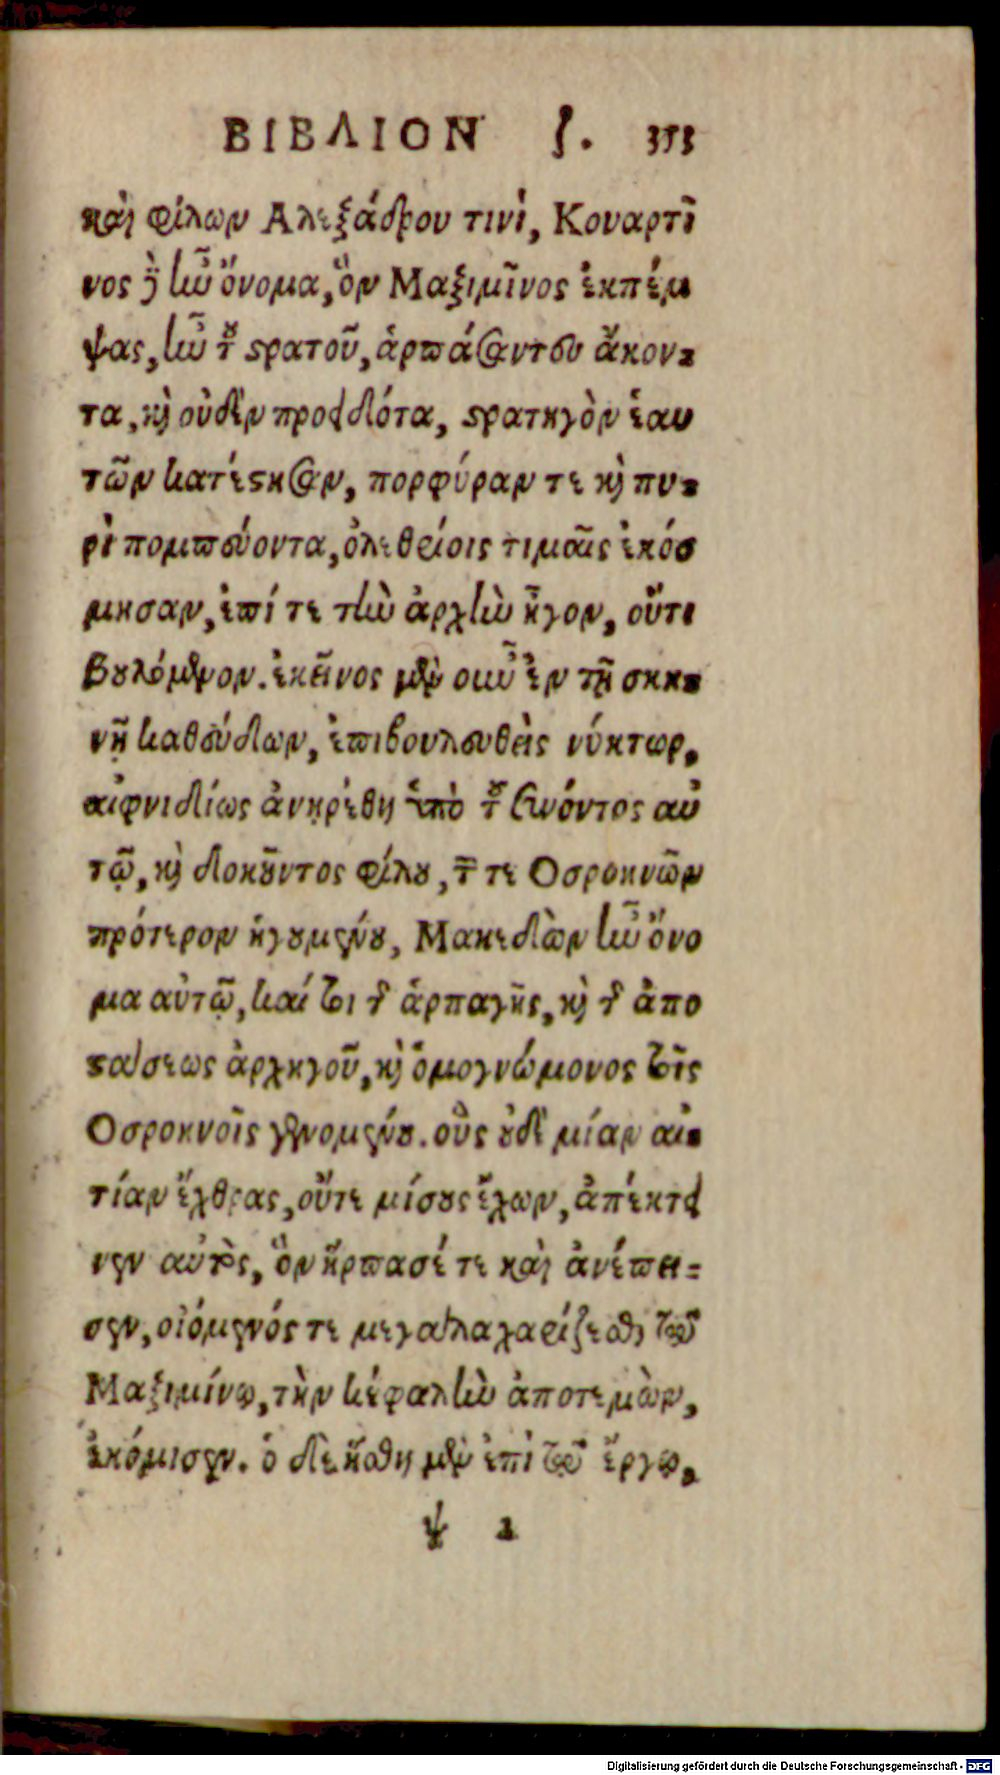 ΒΙΒΛΙΟΝ ζ. 353
καὶ φίλων Αλεξάδρου τινὶ, Κουαρτῖ
νος δὲ ἦν ὄνομα, ὃν Μαξιμῖνος ἐκπέμ
ψας, ἦν τοῦ στρατοῦ, ἁρπάσαντες ἄκον-
τα, καὶ οὐδὲν προειδότα, στρατηγὸν ἑαυ
τῶν κατέστησαν, πορφύραν τε καὶ πυ-
ρὶ πομπεύοντα, ὀλεθρίοις τιμαῖς ἐκόσ
μησαν, ἐπί τε τὴν ἀρχὴν ἦγον, οὔτι
βουλόμενον. ἐκεῖνος μὲν οὖν ἐν τῇ σκη-
νῇ καθεύδων, ἐπιβουλευθεὶς νύκτωρ,
αἰφνιδίως ἀνῃρέθη ὑπὸ τοῦ συνόντος αὐ
τῷ, καὶ δοκοῦντος φίλου, τῶν τε Οσροηνῶν
πρότερον ἡγουμένου, Μακεδὼν ἦν ὄνο
μα αὐτῷ, καί τοι τῆς ἁρπαγῆς, καὶ τῆς ἀπο
στάσεως ἀρχηγοῦ, καὶ ὁμογνώμονος τοῖς
Οσροηνοῖς γενομένου. οὓς οὐδὲ μίαν αἰ-
τίαν ἔχθρας, οὔτε μίσους ἔχων, ἀπέκτει
νεν αὐτὸς, ὃν ἥρπασέ τε καὶ ἀνέπει-
σεν, οἰόμενός τε μεγάλα χαρίζεσθαι τῷ
Μαξιμίνῳ, τὴν κεφαλὴν ἀποτεμὼν,
ἐκόμισεν. ὁ δὲ ἥσθη μὲν ἐπὶ τῷ ἔργῳ,
ψ 2
Digitalisierung gefördert durch die Deutsche Forschungsgemeinschaft - DFG